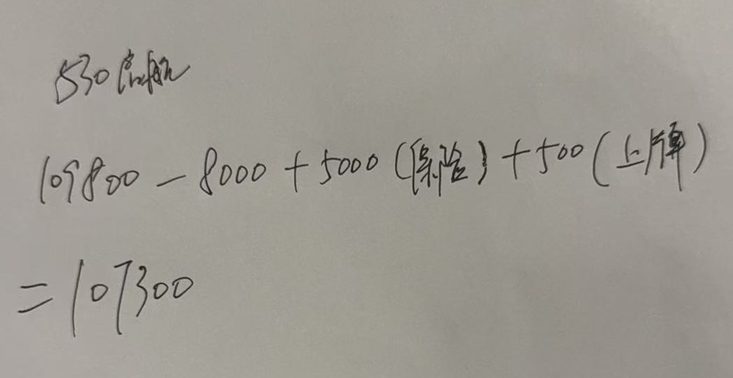 530高航
109800-8000+5000(保险)+500(上牌)
=107300